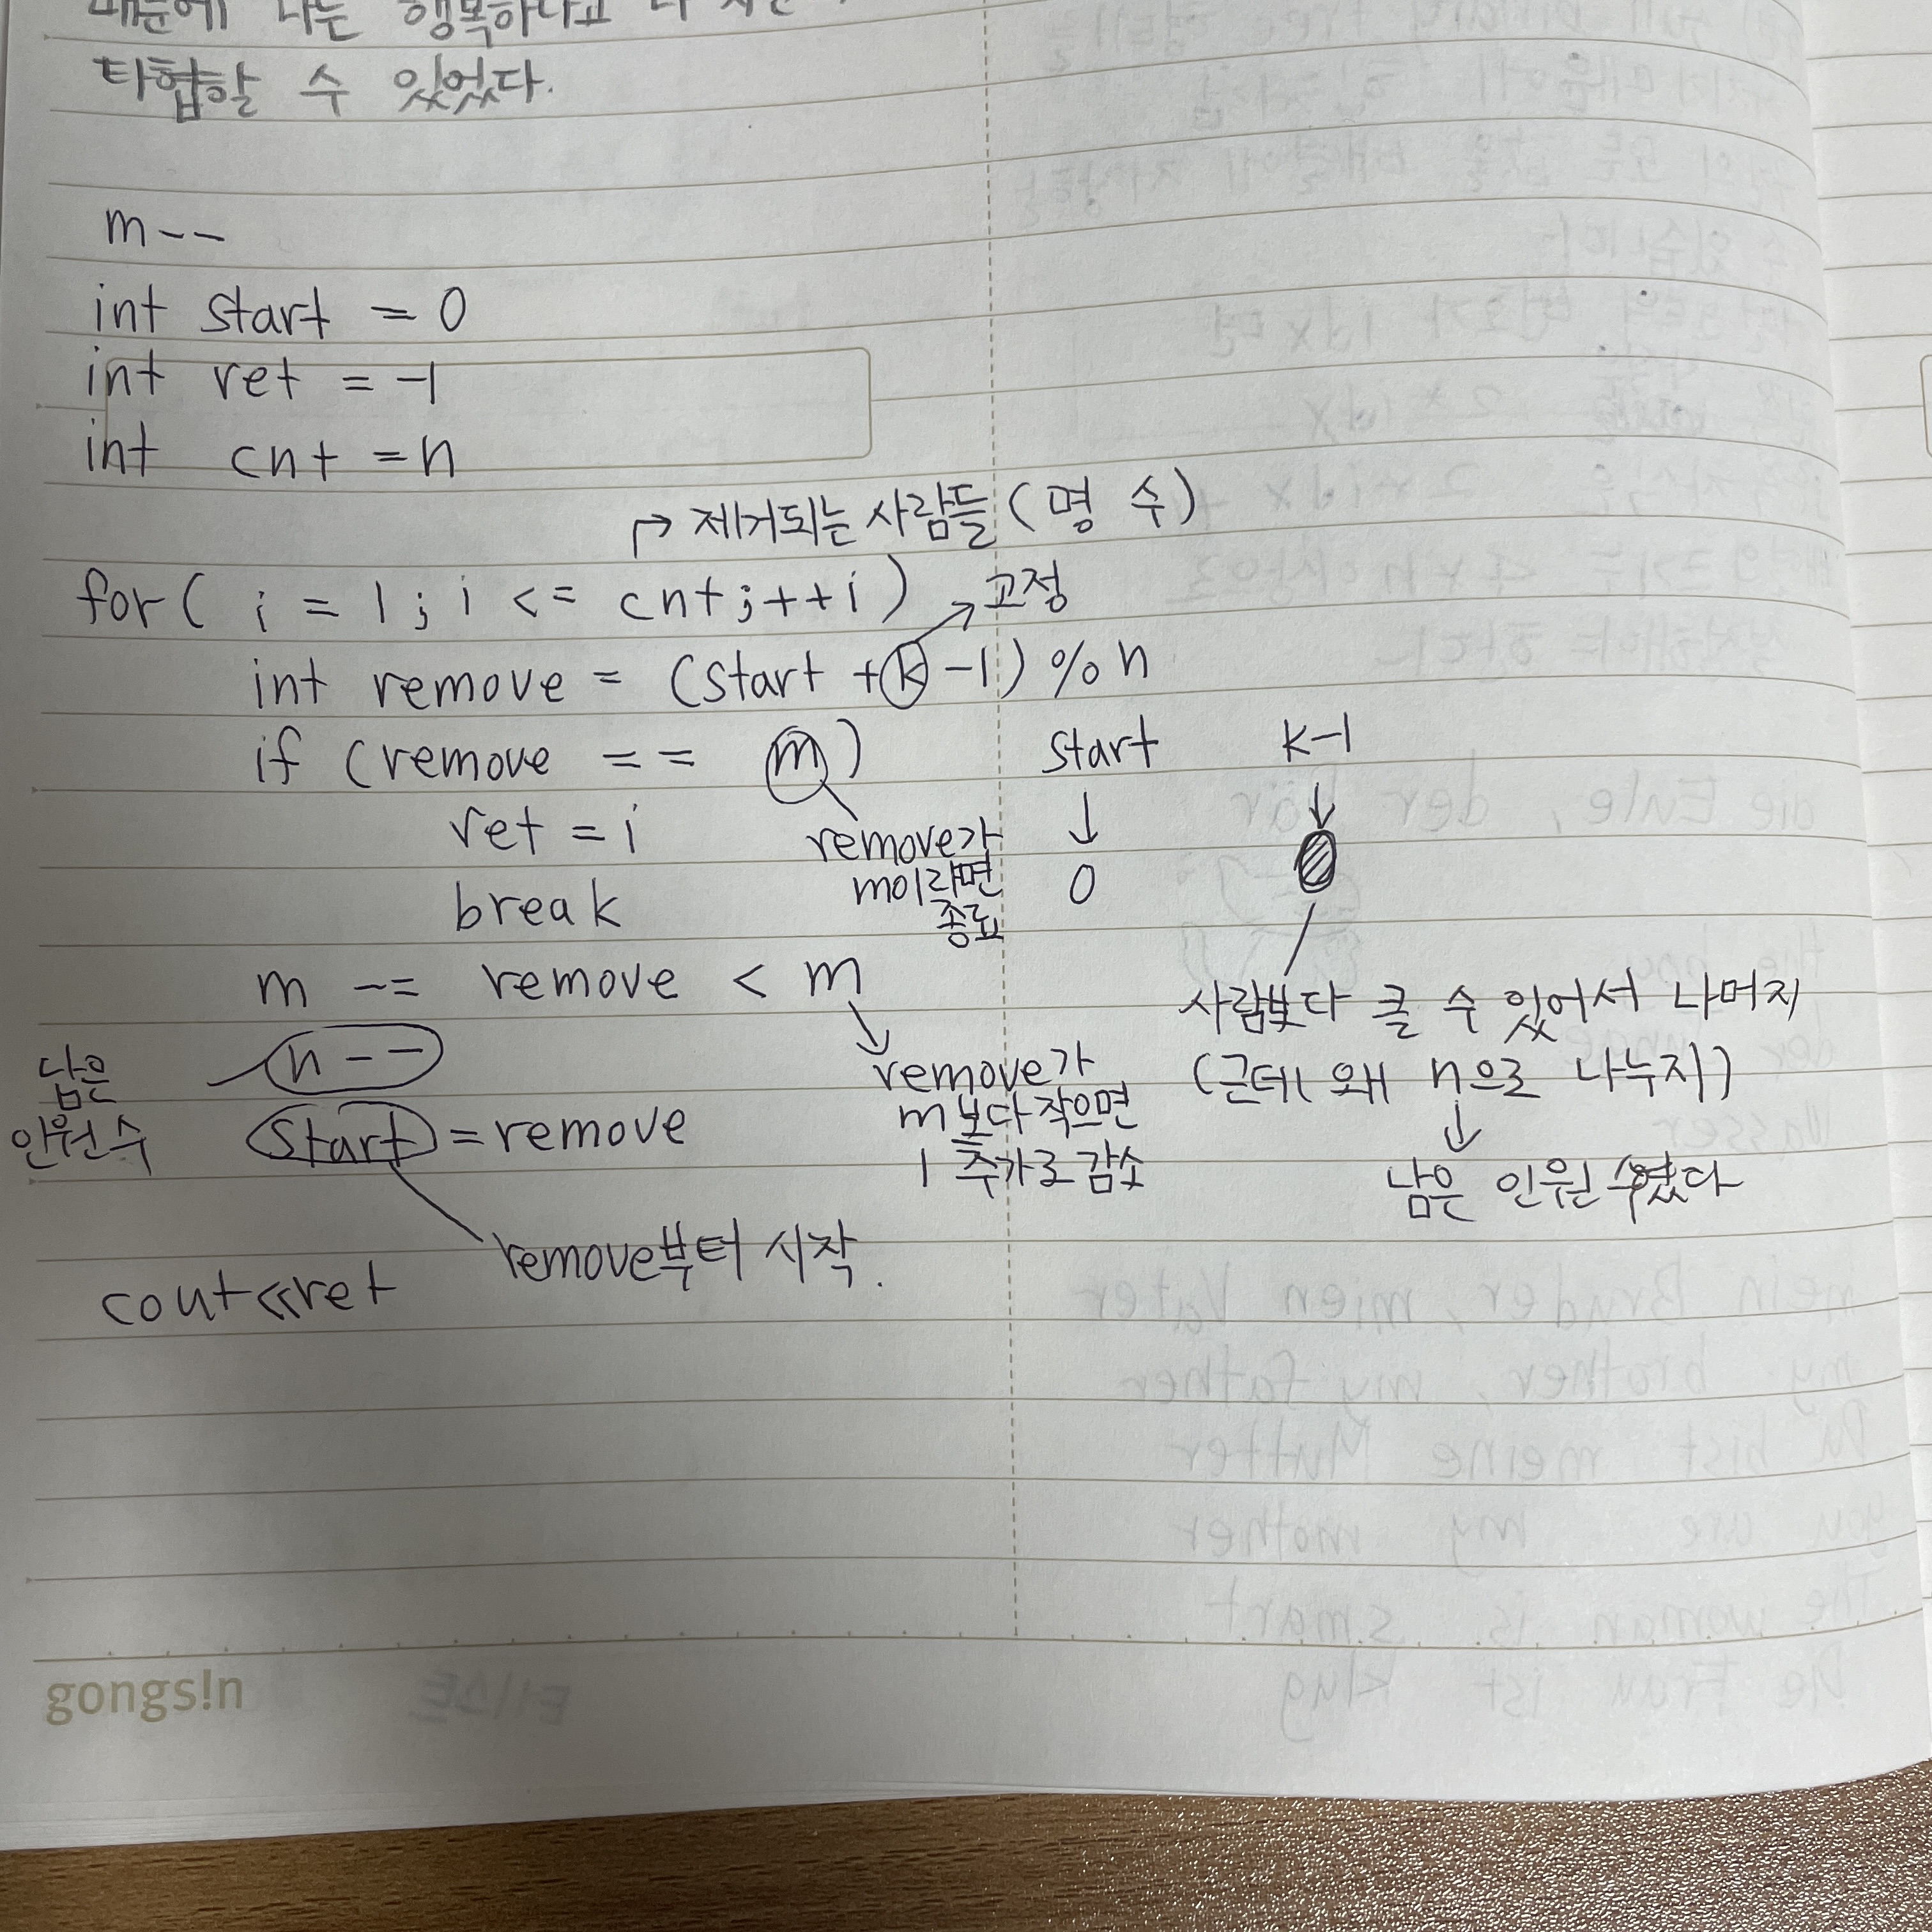 때문에 나는 행복하다고
타협할 수 있었다.
m--
int start = 0
int ret = -1
int cnt = n
→ 제거되는 사람들 (명 수)
for( i = 1; i <= cnt; ++i)
→ 고정
int remove = (start + k -1) % n
if (remove == m)
ret = i
break
remove가
m이라면
종료
start
↓
0
k-1
↓
사람보다 클 수 있어서 나머지
(근데 왜 n으로 나누지)
↓
남은 인원 수였다
m -= remove < m
remove가
m보다 작으면
1 추가로 감소
n--
남은
인원수
start = remove
remove부터 시작.
cout<<ret
gongs!n